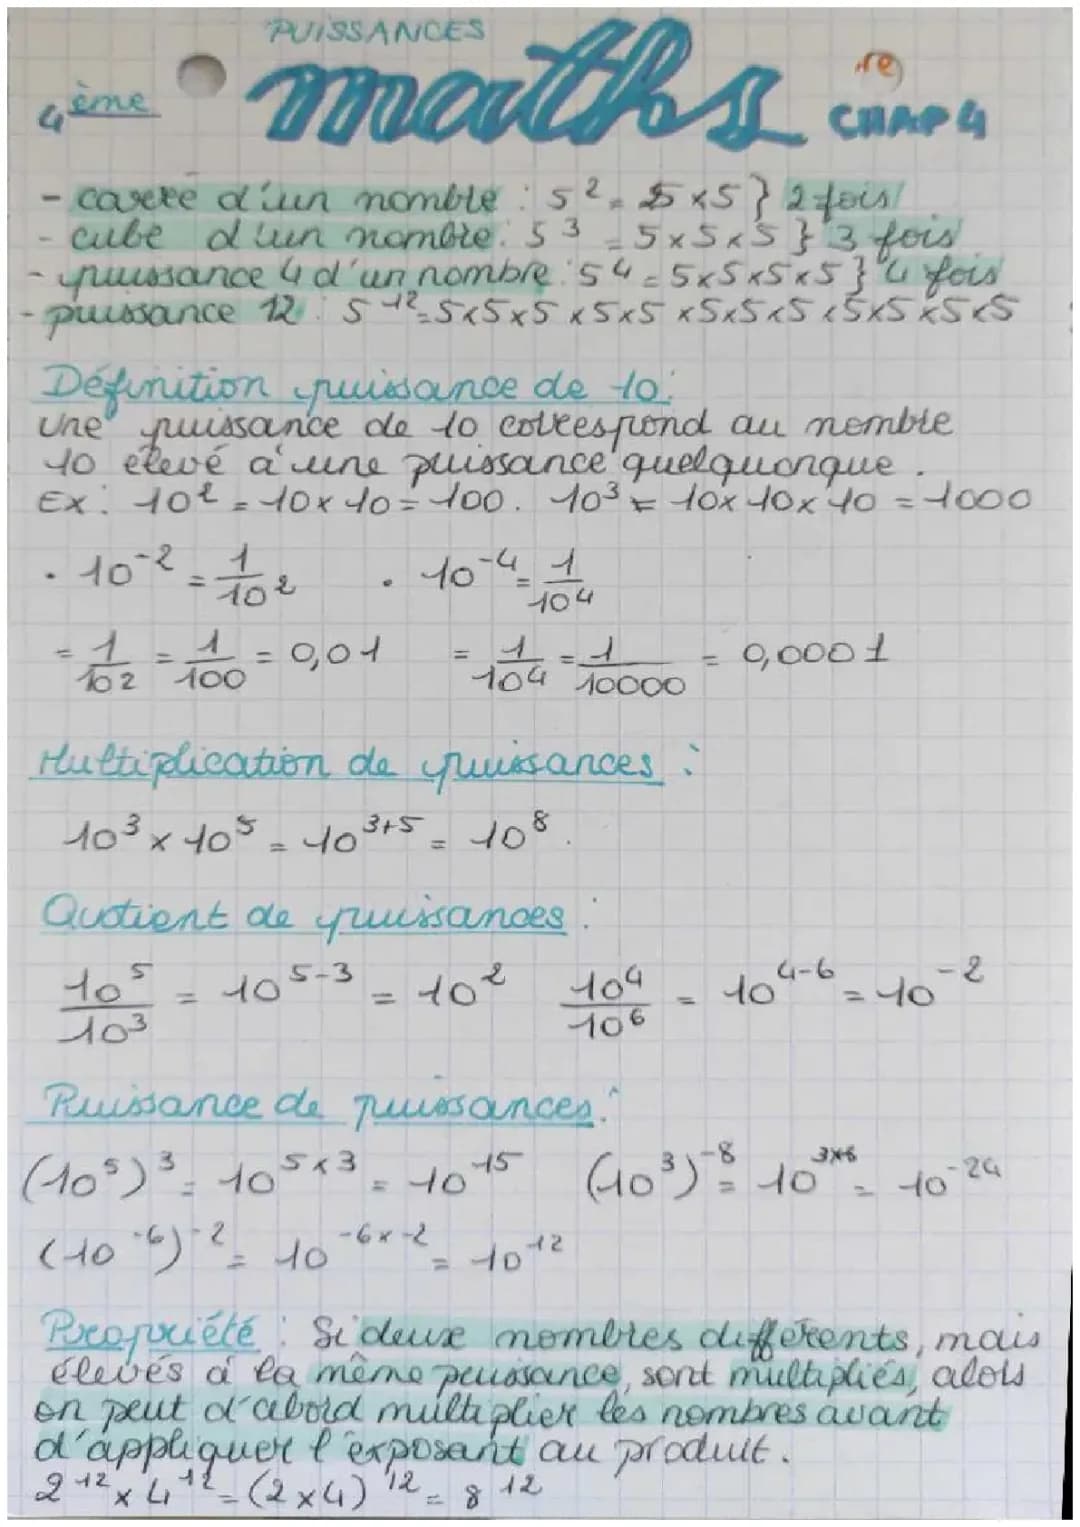 PUISSANCES
4ème maths CHAP 4
- carré d'un nombre : 5² = 5 x 5 } 2 fois
- cube d'un nombre : 5³ = 5 x 5 x 5 } 3 fois
- puissance 4 d'un nombre : 5⁴ = 5x5x5x5 } 4 fois
- puissance 12 : 5¹² = 5x5x5x5x5x5x5x5x5x5x5x5
Définition puissance de 10 :
Une puissance de 10 correspond au nombre
10 élevé à une puissance quelquonque.
Ex : 10² = 10 x 10 = 100. 10³ = 10x 10x 10 = 1000
· 10⁻² = 1/10² · 10⁻⁴ = 1/10⁴
= 1/10² = 1/100 = 0,01 = 1/10⁴ = 1/10000 = 0,0001
Multiplication de puissances :
10³ x 10⁵ = 10³⁺⁵ = 10⁸.
Quotient de puissances :
10⁵/10³ = 10⁵⁻³ = 10² 10⁴/10⁶ = 10⁴⁻⁶ = 10⁻²
Puissance de puissances :
(10⁵)³ = 10^(5x3) = 10¹⁵ (10³)⁻⁸ = 10^(3x-8) = 10⁻²⁴
(10⁻⁶)⁻² = 10^(-6x-2) = 10¹²
Propriété : Si deux nombres différents, mais
élevés à la même puissance, sont multipliés, alors
on peut d'abord multiplier les nombres avant
d'appliquer l'exposant au produit.
2¹² x 4¹² = (2x4)¹² = 8¹²